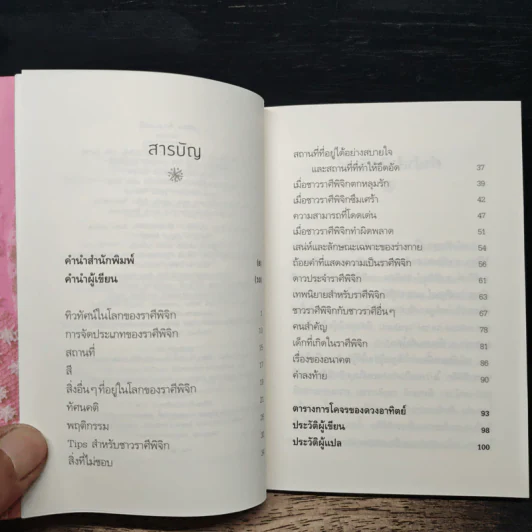 สารบัญ
คำนำสำนักพิมพ์
คำนำผู้เขียน
ทิวทัศน์ในโลกของราศีพิจิก
การจัดประเภทของราศีพิจิก
สถานที่
สี
สิ่งอื่นๆ ที่อยู่ในโลกของราศีพิจิก
ทัศนคติ
พฤติกรรม
Tips สำหรับชาวราศีพิจิก
สิ่งที่ไม่ชอบ
สถานที่ที่อยู่ได้อย่างสบายใจ
และสถานที่ที่ทำให้อึดอัด 37
เมื่อชาวราศีพิจิกตกหลุมรัก 39
เมื่อชาวราศีพิจิกซึมเศร้า 42
ความสามารถที่โดดเด่น 47
เมื่อชาวราศีพิจิกทำผิดพลาด 51
เสน่ห์และลักษณะเฉพาะของร่างกาย 54
ถ้อยคำที่แสดงความเป็นราศีพิจิก 56
ดาวประจำราศีพิจิก 61
เทพนิยายสำหรับราศีพิจิก 63
ชาวราศีพิจิกกับชาวราศีอื่นๆ 67
คนสำคัญ 78
เด็กที่เกิดในราศีพิจิก 81
เรื่องของอนาคต 86
คำลงท้าย 90
ตารางการโคจรของดวงอาทิตย์ 93
ประวัติผู้เขียน 98
ประวัติผู้แปล 100